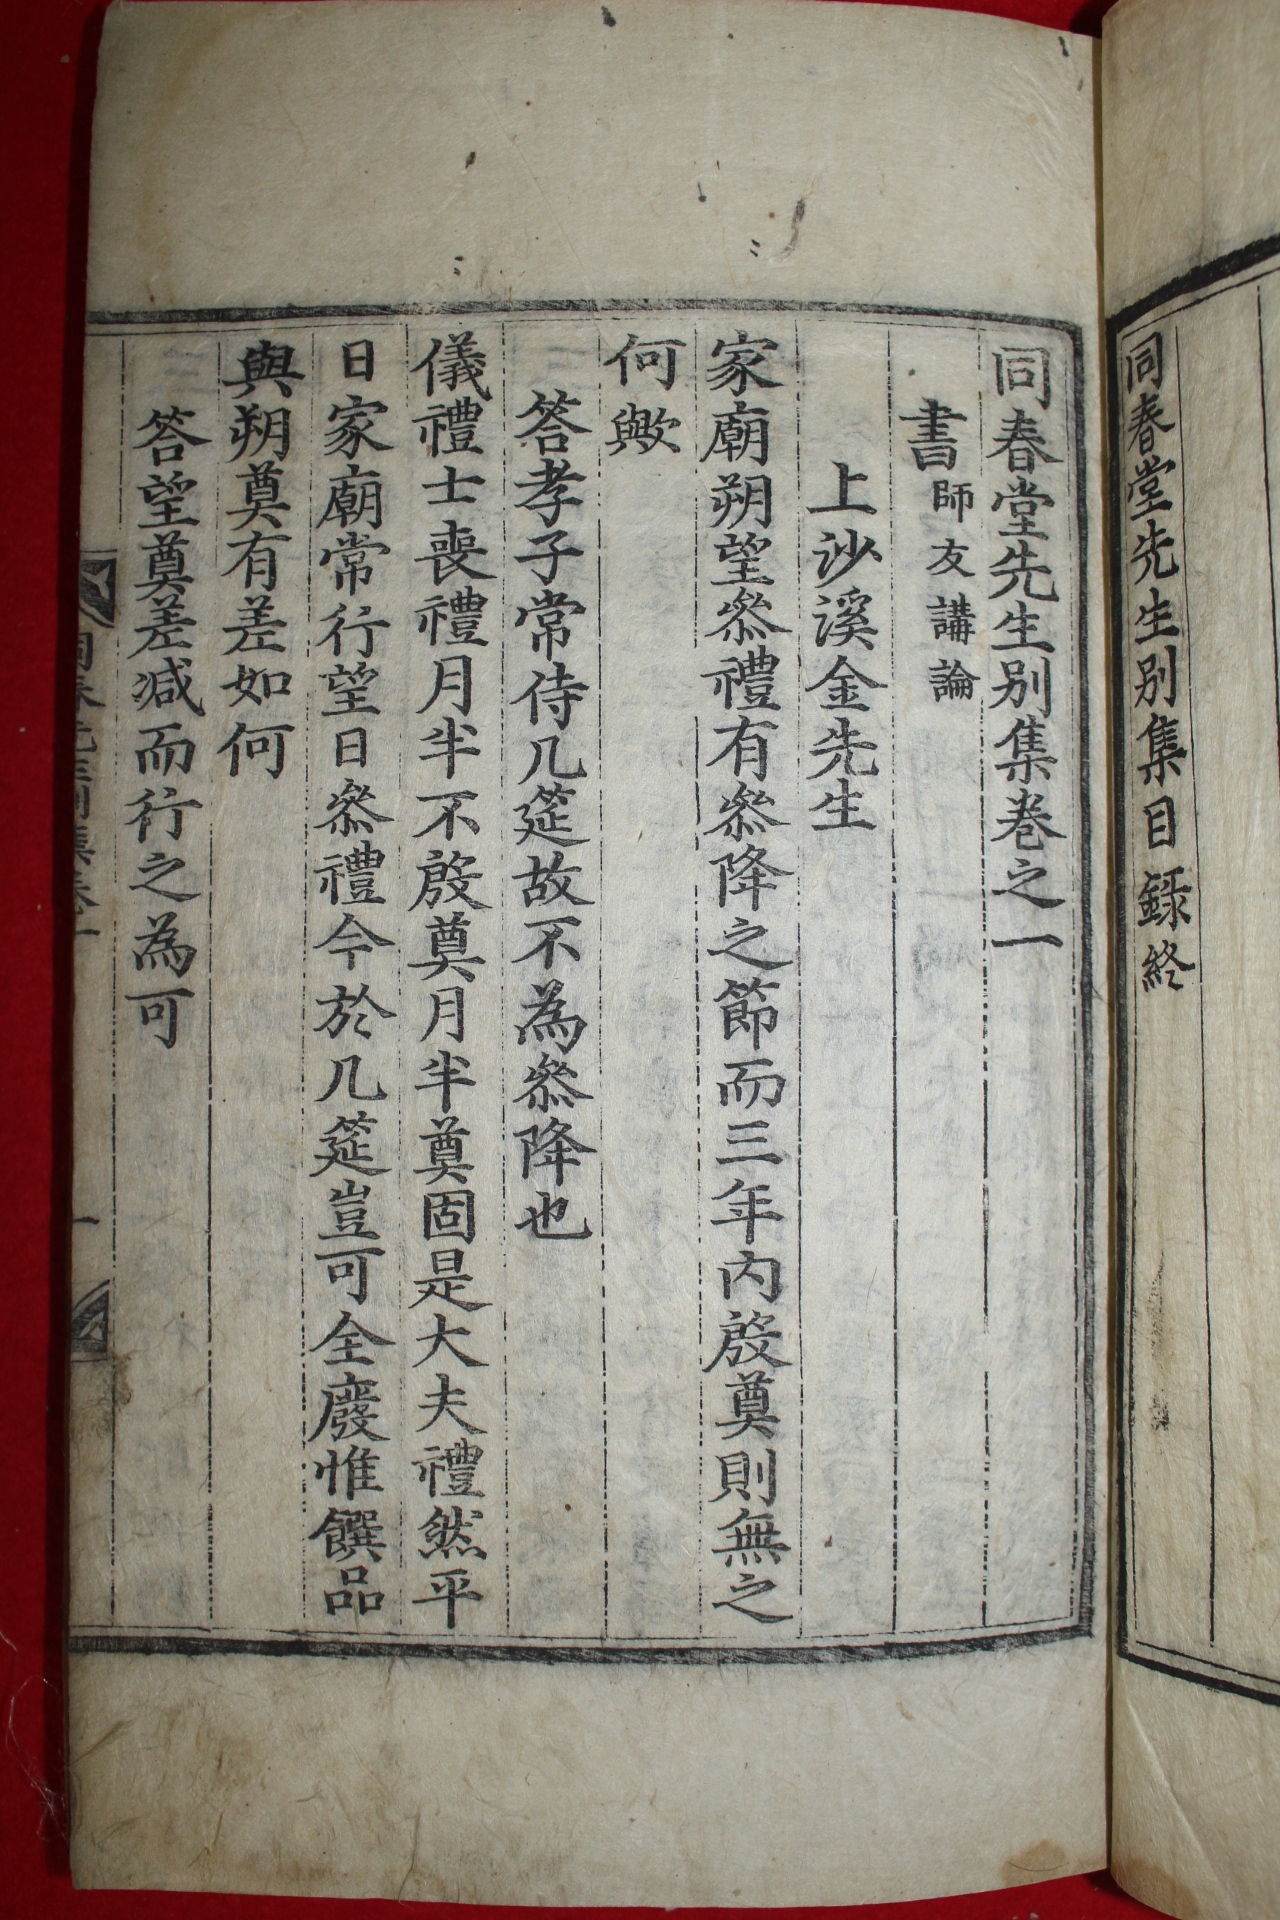 同春堂先生別集目錄終
同春堂先生別集卷之一
書師友講論
上沙溪金先生
家廟朔望叅禮有叅降之節而三年內殷奠則無之
何歟
答孝子常侍几筵故不為叅降也
儀禮士喪禮月半不殷奠月半奠固是大夫禮然平
日家廟常行望日叅禮今於几筵豈可全廢惟饌品
與朔奠有差如何
答望奠差减而行之為可